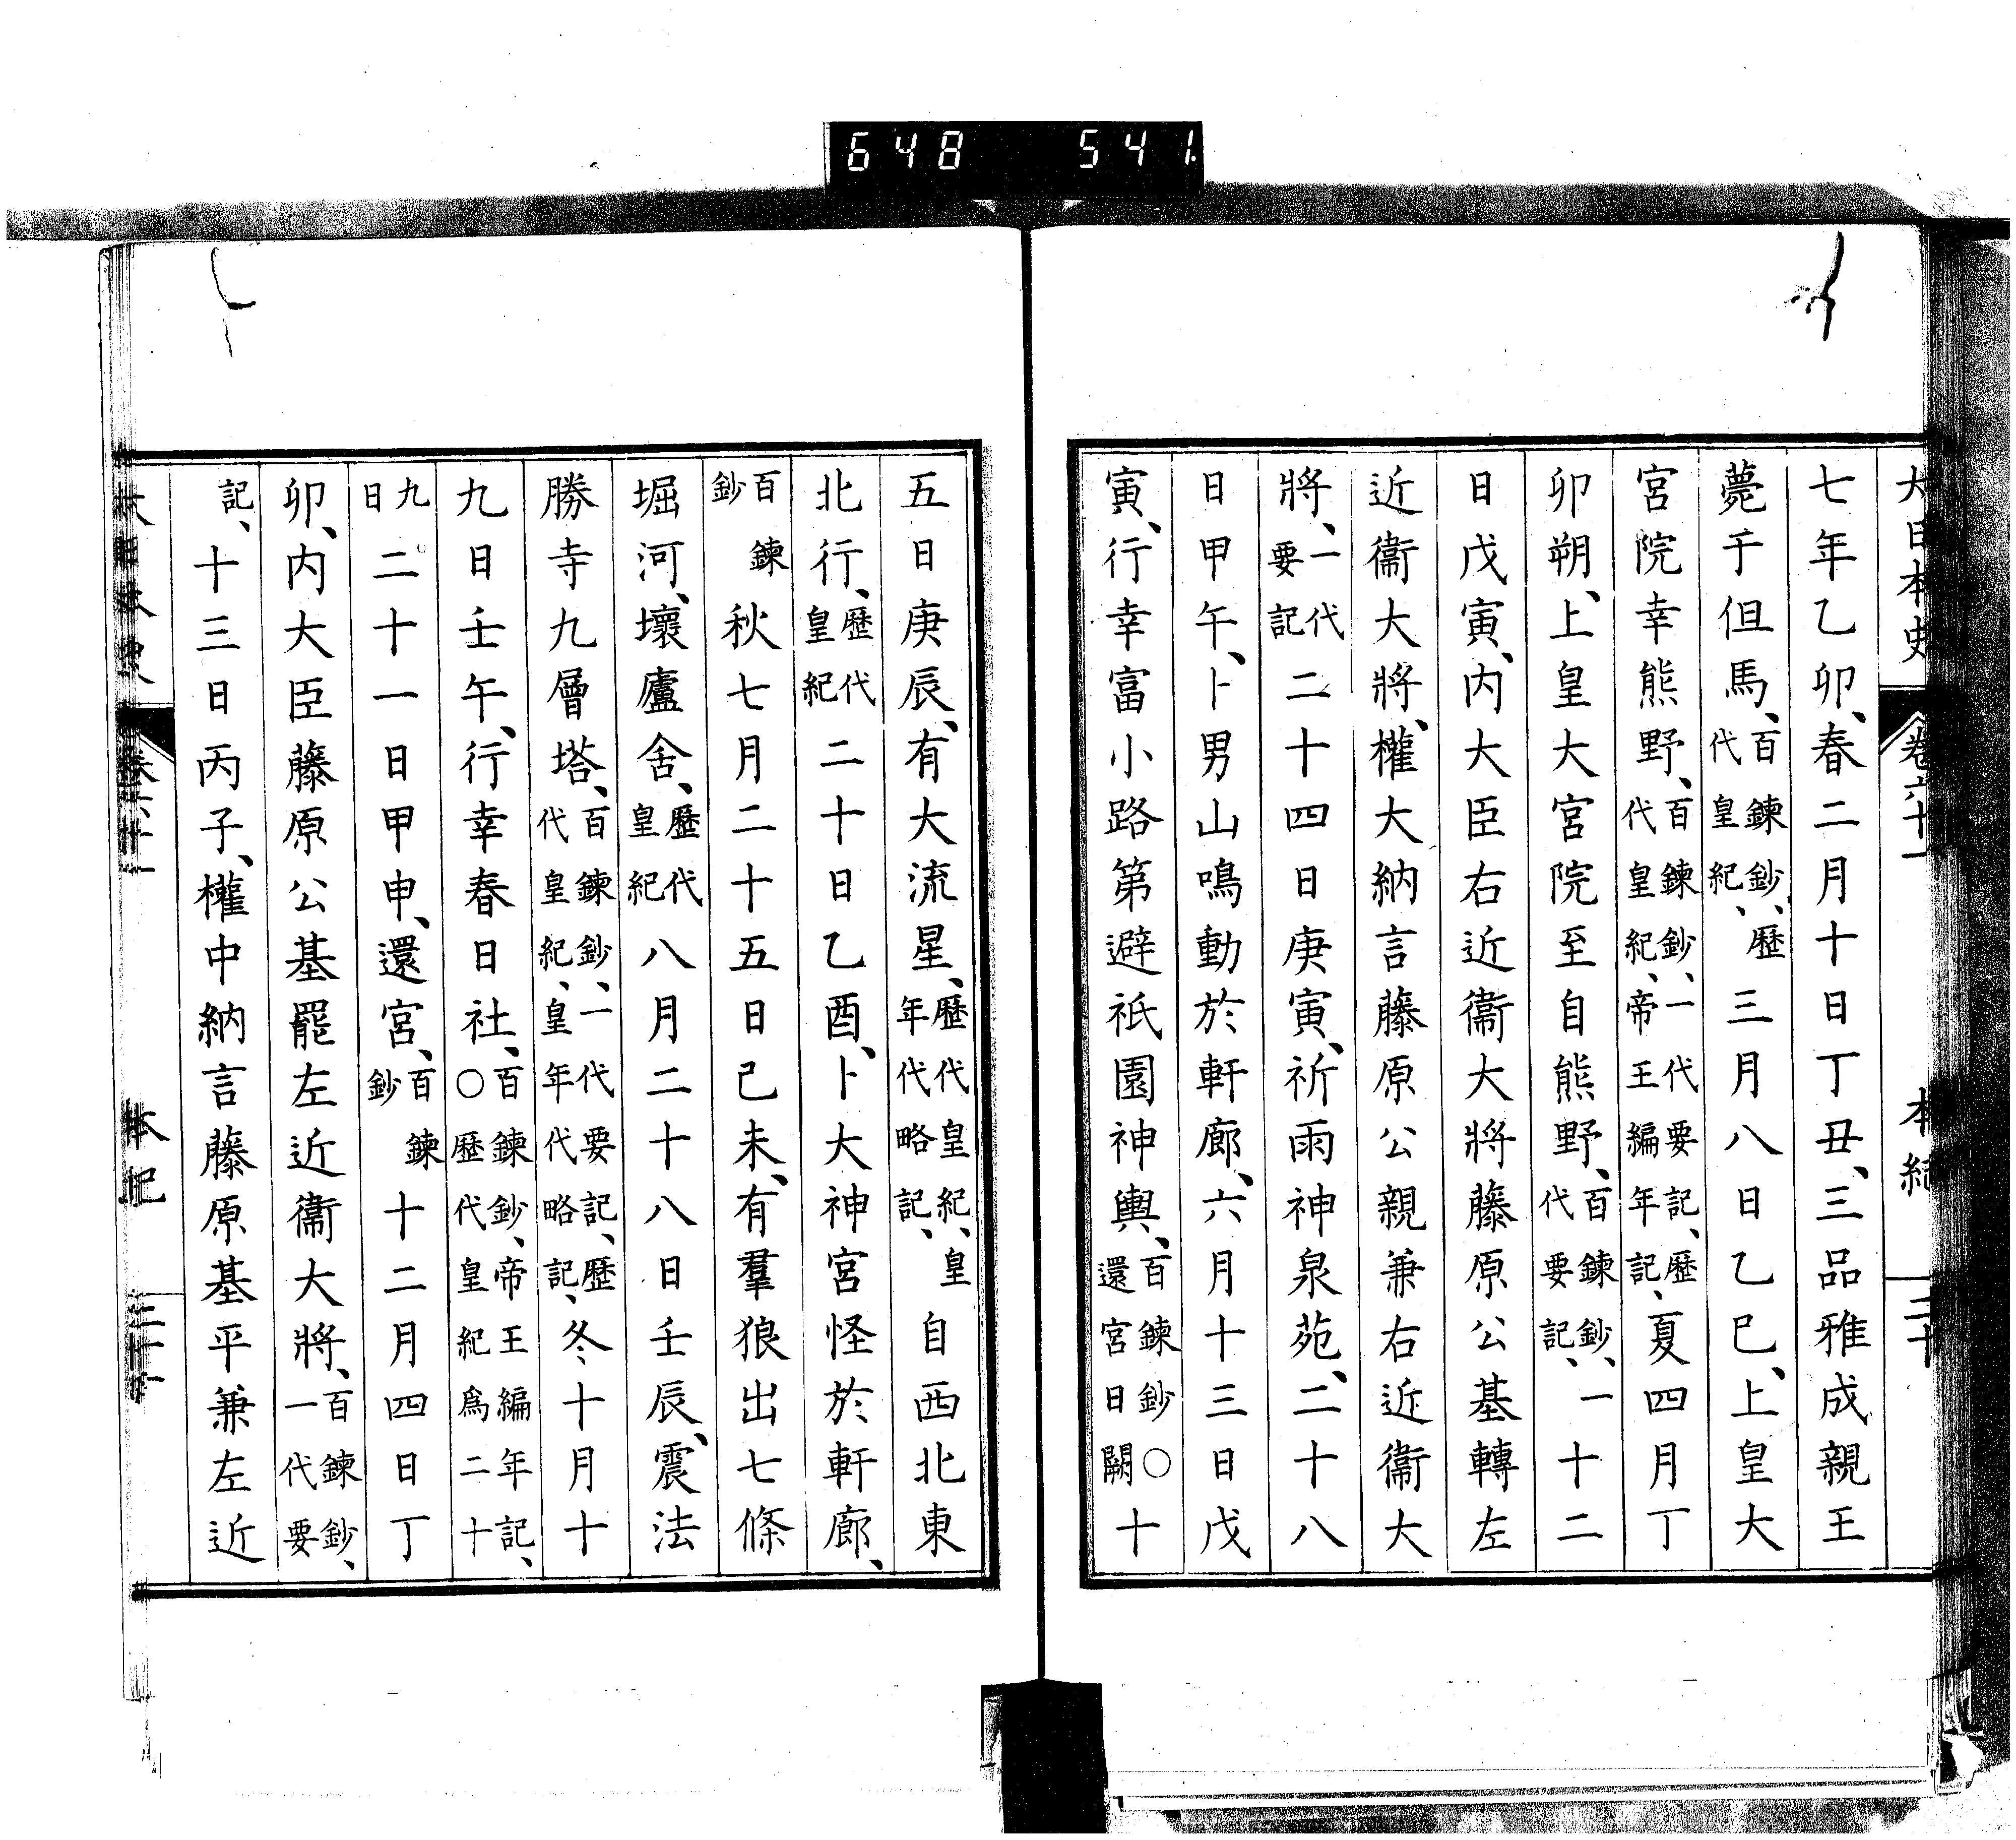 648 541
大日本史 卷六十一 本紀 三十
七年乙卯、春二月十日丁丑、三品雅成親王
薨于但馬、百鍊鈔、歷代皇紀、三月八日乙巳、上皇大
宮院幸熊野、百鍊鈔、一代要記、歷代皇紀、帝王編年記、夏四月丁
卯朔、上皇大宮院至自熊野、百鍊鈔、一代要記、十二
日戊寅、内大臣右近衞大將藤原公基轉左
近衞大將、權大納言藤原公親兼右近衞大
將、一代要記二十四日庚寅、祈雨神泉苑、二十八
日甲午、卜男山鳴動於軒廊、六月十三日戊
寅、行幸富小路第避祇園神輿、百鍊鈔○還宮日闕十
五日庚辰、有大流星、歷代皇紀、皇年代略記、自西北東
北行、歷代皇紀二十日乙酉、卜大神宮怪於軒廊、
百鍊鈔秋七月二十五日己未、有羣狼出七條
堀河、壞廬舍、歷代皇紀八月二十八日壬辰、震法
勝寺九層塔、百鍊鈔、一代要記、歷代皇紀、皇年代略記、冬十月十
九日壬午、行幸春日社、百鍊鈔、帝王編年記、○歷代皇紀爲二十
九日二十一日甲申、還宮、百鍊鈔十二月四日丁
卯、内大臣藤原公基罷左近衞大將、百鍊鈔、一代要
記、十三日丙子、權中納言藤原基平兼左近
本紀